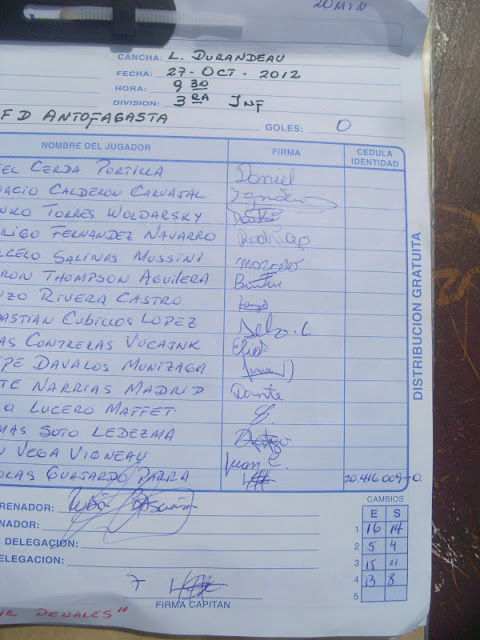 20 MIN
CANCHA: L. DURANDEAU
FECHA: 27-OCT-2012
HORA: 9 30
DIVISION: 3 RA INF
F D ANTOFAGASTA
GOLES: 0
NOMBRE DEL JUGADOR FIRMA CEDULA IDENTIDAD
EL CERDA PORTILLA Daniel
ACIO CALDERON CARVAJAL Ignacio
NKO TORRES WOLDARSKY
RIGO FERNANDEZ NAVARRO Rodrigo
RCELO SALINAS MUSSINI marcelo
RON THOMPSON AGUILERA
NZO RIVERA CASTRO
BASTIAN CUBILLOS LOPEZ
AS CONTRERAS VUCAINK Elias
IPE DAVALOS MUNIZAGA
TE NARRIAS MADRID Dante
O LUCERO MAFFET
MAS SOTO LEDEZMA
N VEGA VIGNEAY Juan
OLAS GUAJARDO PARRA 20.416.009-0
DISTRIBUCION GRATUITA
CAMBIOS
RENADOR:
NADOR:
DELEGACION:
DELEGACION:
E S
1 16 14
2 5 4
3 15 11
4 13 8
5
7
FIRMA CAPITAN
DENALES"